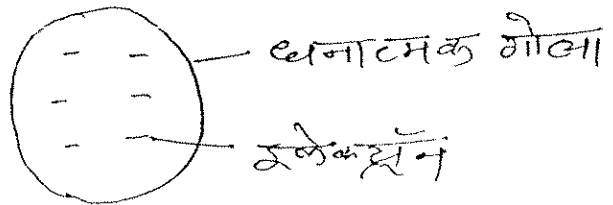 धनात्मक गोला
इलेक्ट्रॉन